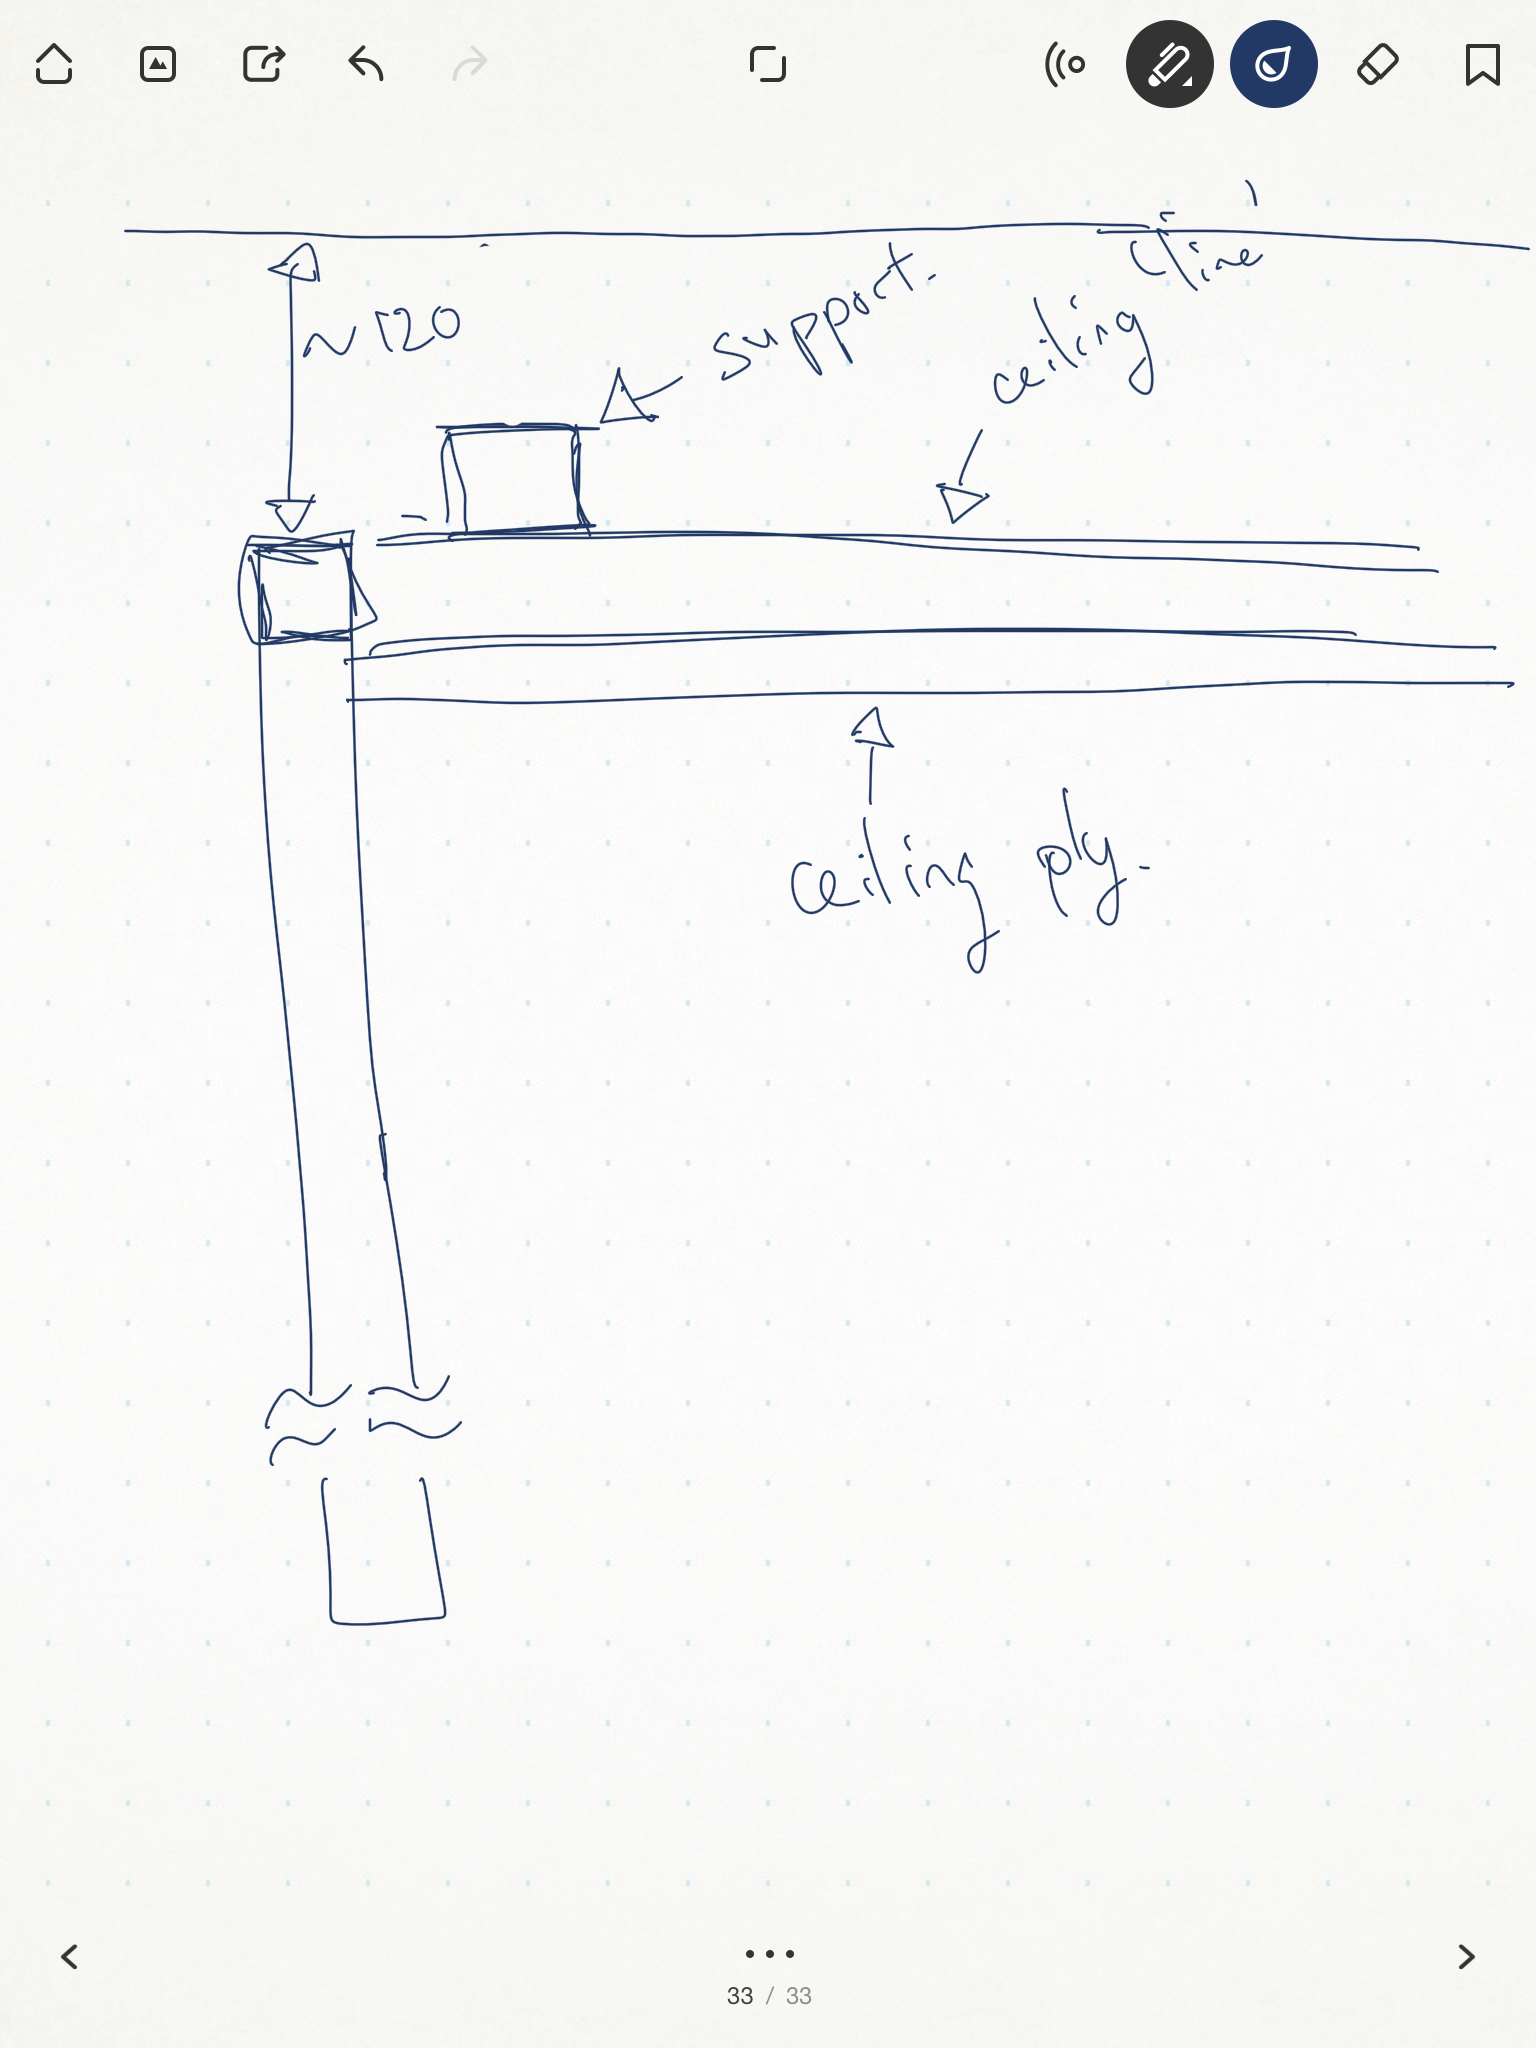 ~ 120
support.
ceiling
line
ceiling ply.
33 / 33